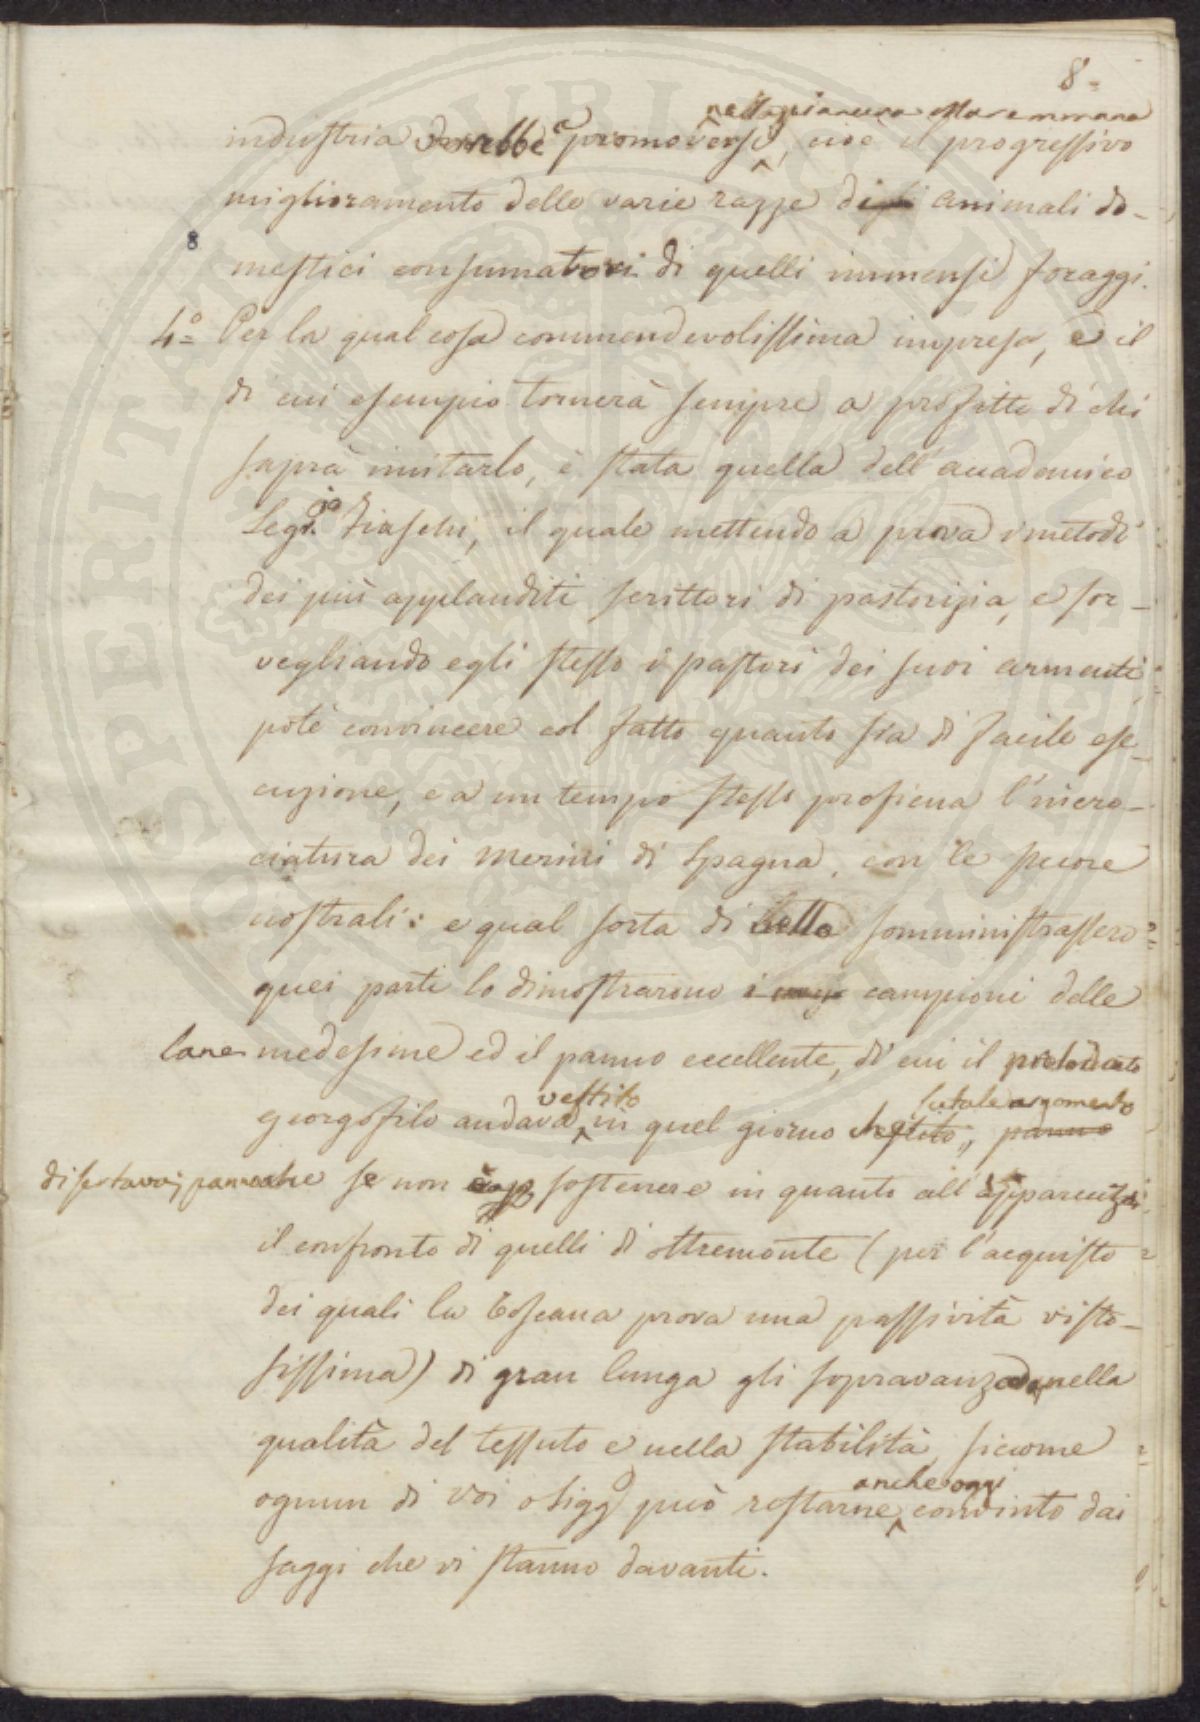 8.
nella pianura Maremmana
industria dovrebbe promoversi, cioè il progressivo
miglioramento delle varie razze di animali do-
8
mestici consumatori di quelli immensi foraggi.
4.° Per la qual cosa commendevolissima impresa, e il
di cui esempio tornerà sempre a profitto di chi
saprà imitarlo, è stata quella dell'accademico
Fiaschi, il quale mettendo a prova i metodi
dei più applauditi scrittori di pastorizia, e sor-
vegliando egli stesso i pastori dei suoi armenti,
potè convincere col fatto quanto sia di facile ese-
cuzione, e a un tempo stesso proficua l'incro-
ciatura dei merini di Spagna, con le pecore
nostrali: e qual sorta di somministrassero
quei parti lo dimostrarono i campioni delle
lane medesime ed il panno eccellente, di cui il prelodato
vestito su tale argomento
georgofilo andava in quel giorno che vestito, panno
disertava; panno che se non sostenere in quanto all'apparenza
il confronto di quelli di oltremonte (per l'acquisto
dei quali la Toscana prova una passività visto-
sissima) di gran lunga gli sopravanza nella
qualità del tessuto e nella stabilità, siccome
anche oggi
ognun di voi o Sigg può restarne convinto dai
saggi che vi stanno davanti.